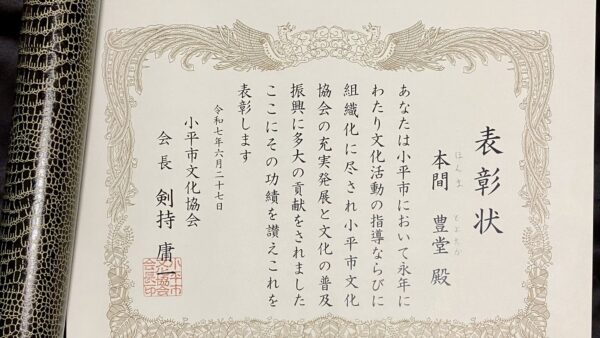 表彰状
ほんま とよたか
本間 豊堂 殿
あなたは小平市において永年に
わたり文化活動の指導ならびに
組織化に尽され小平市文化
協会の充実発展と文化の普及
振興に多大の貢献をされました
ここにその功績を讃えこれを
表彰します
令和七年六月二十七日
小平市文化協会
会長 剣持 庸一